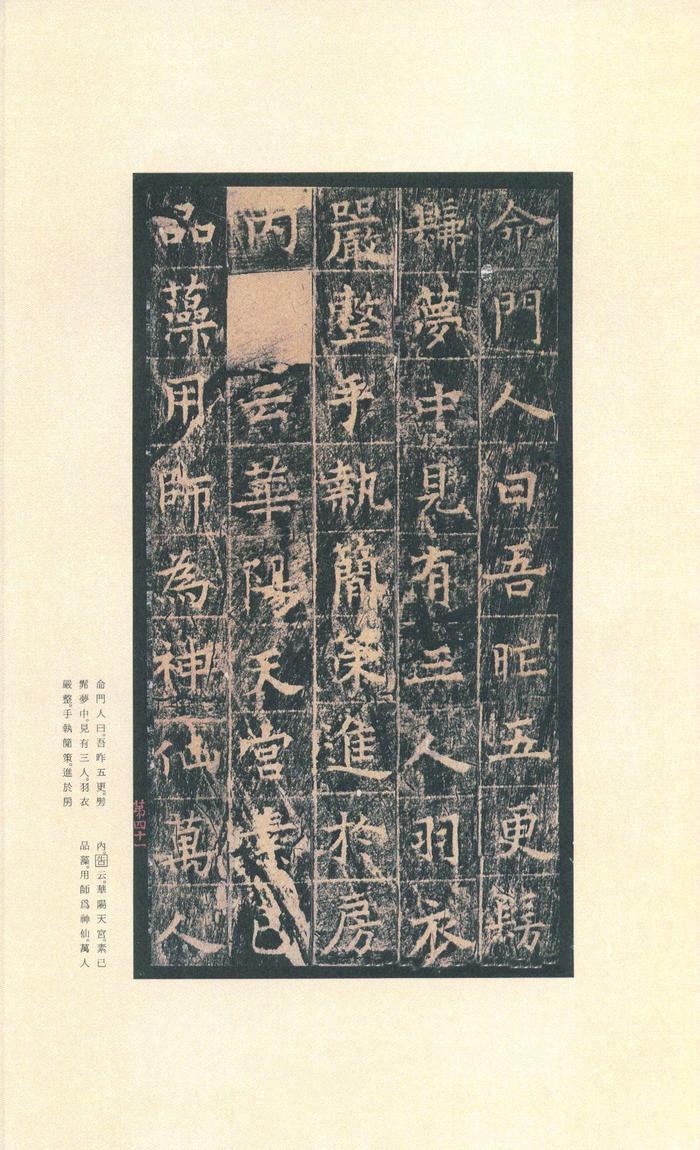 命門人曰吾昨五更髣
髴夢中見有三人羽衣
嚴整手執簡策進於房
内云華陽天宮素已
品藻用師為神仙萬人
命門人曰。吾昨五更。髣
髴夢中。見有三人。羽衣
嚴整。手執簡策。進於房
內。告云。華陽天宮。素已
品藻。用師爲神仙。萬人